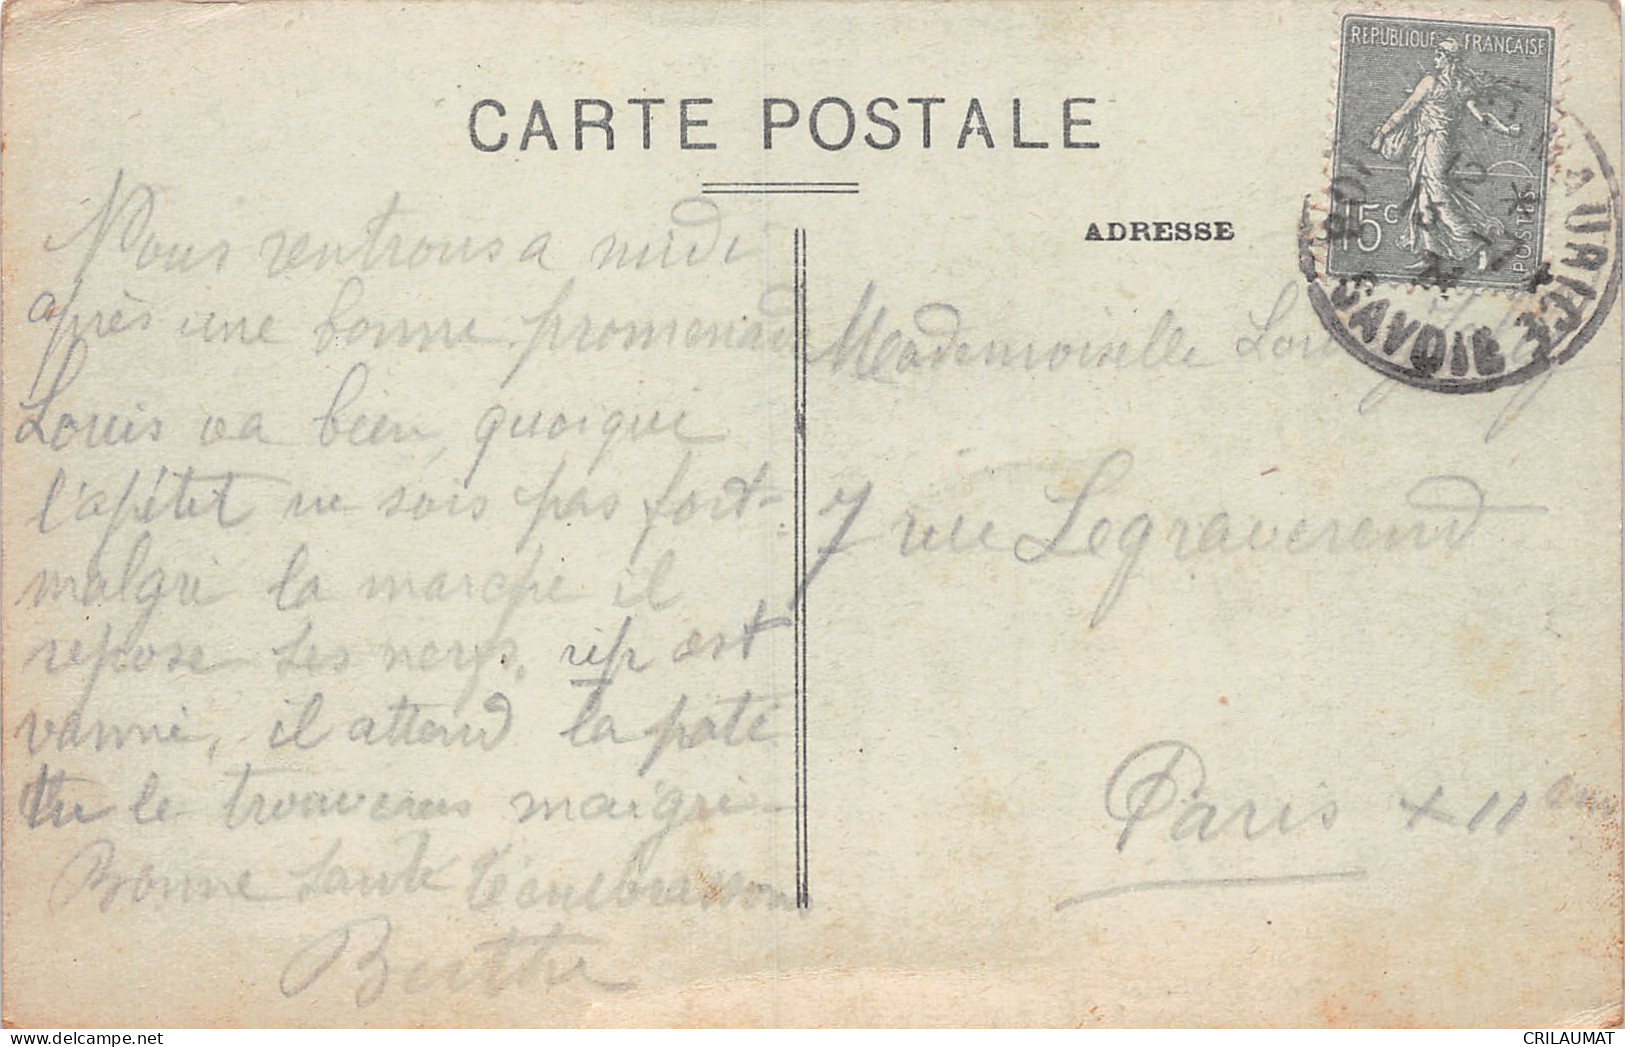 CARTE POSTALE
ADRESSE
REPUBLIQUE FRANÇAISE
15c
POSTES
SAVOIE
Nous rentrons a midi
après une bonne promenade
Louis va bien, quoique
l'apétit ne sois pas fort-
malgré la marche il
repose ses nerfs, est
vanné, il attend la paté
tu le trouveras maigri-
Bonne santé t'enbrassons
Berthe
Mademoiselle
7 rue Legraverend
Paris X 11
CRILAUMAT